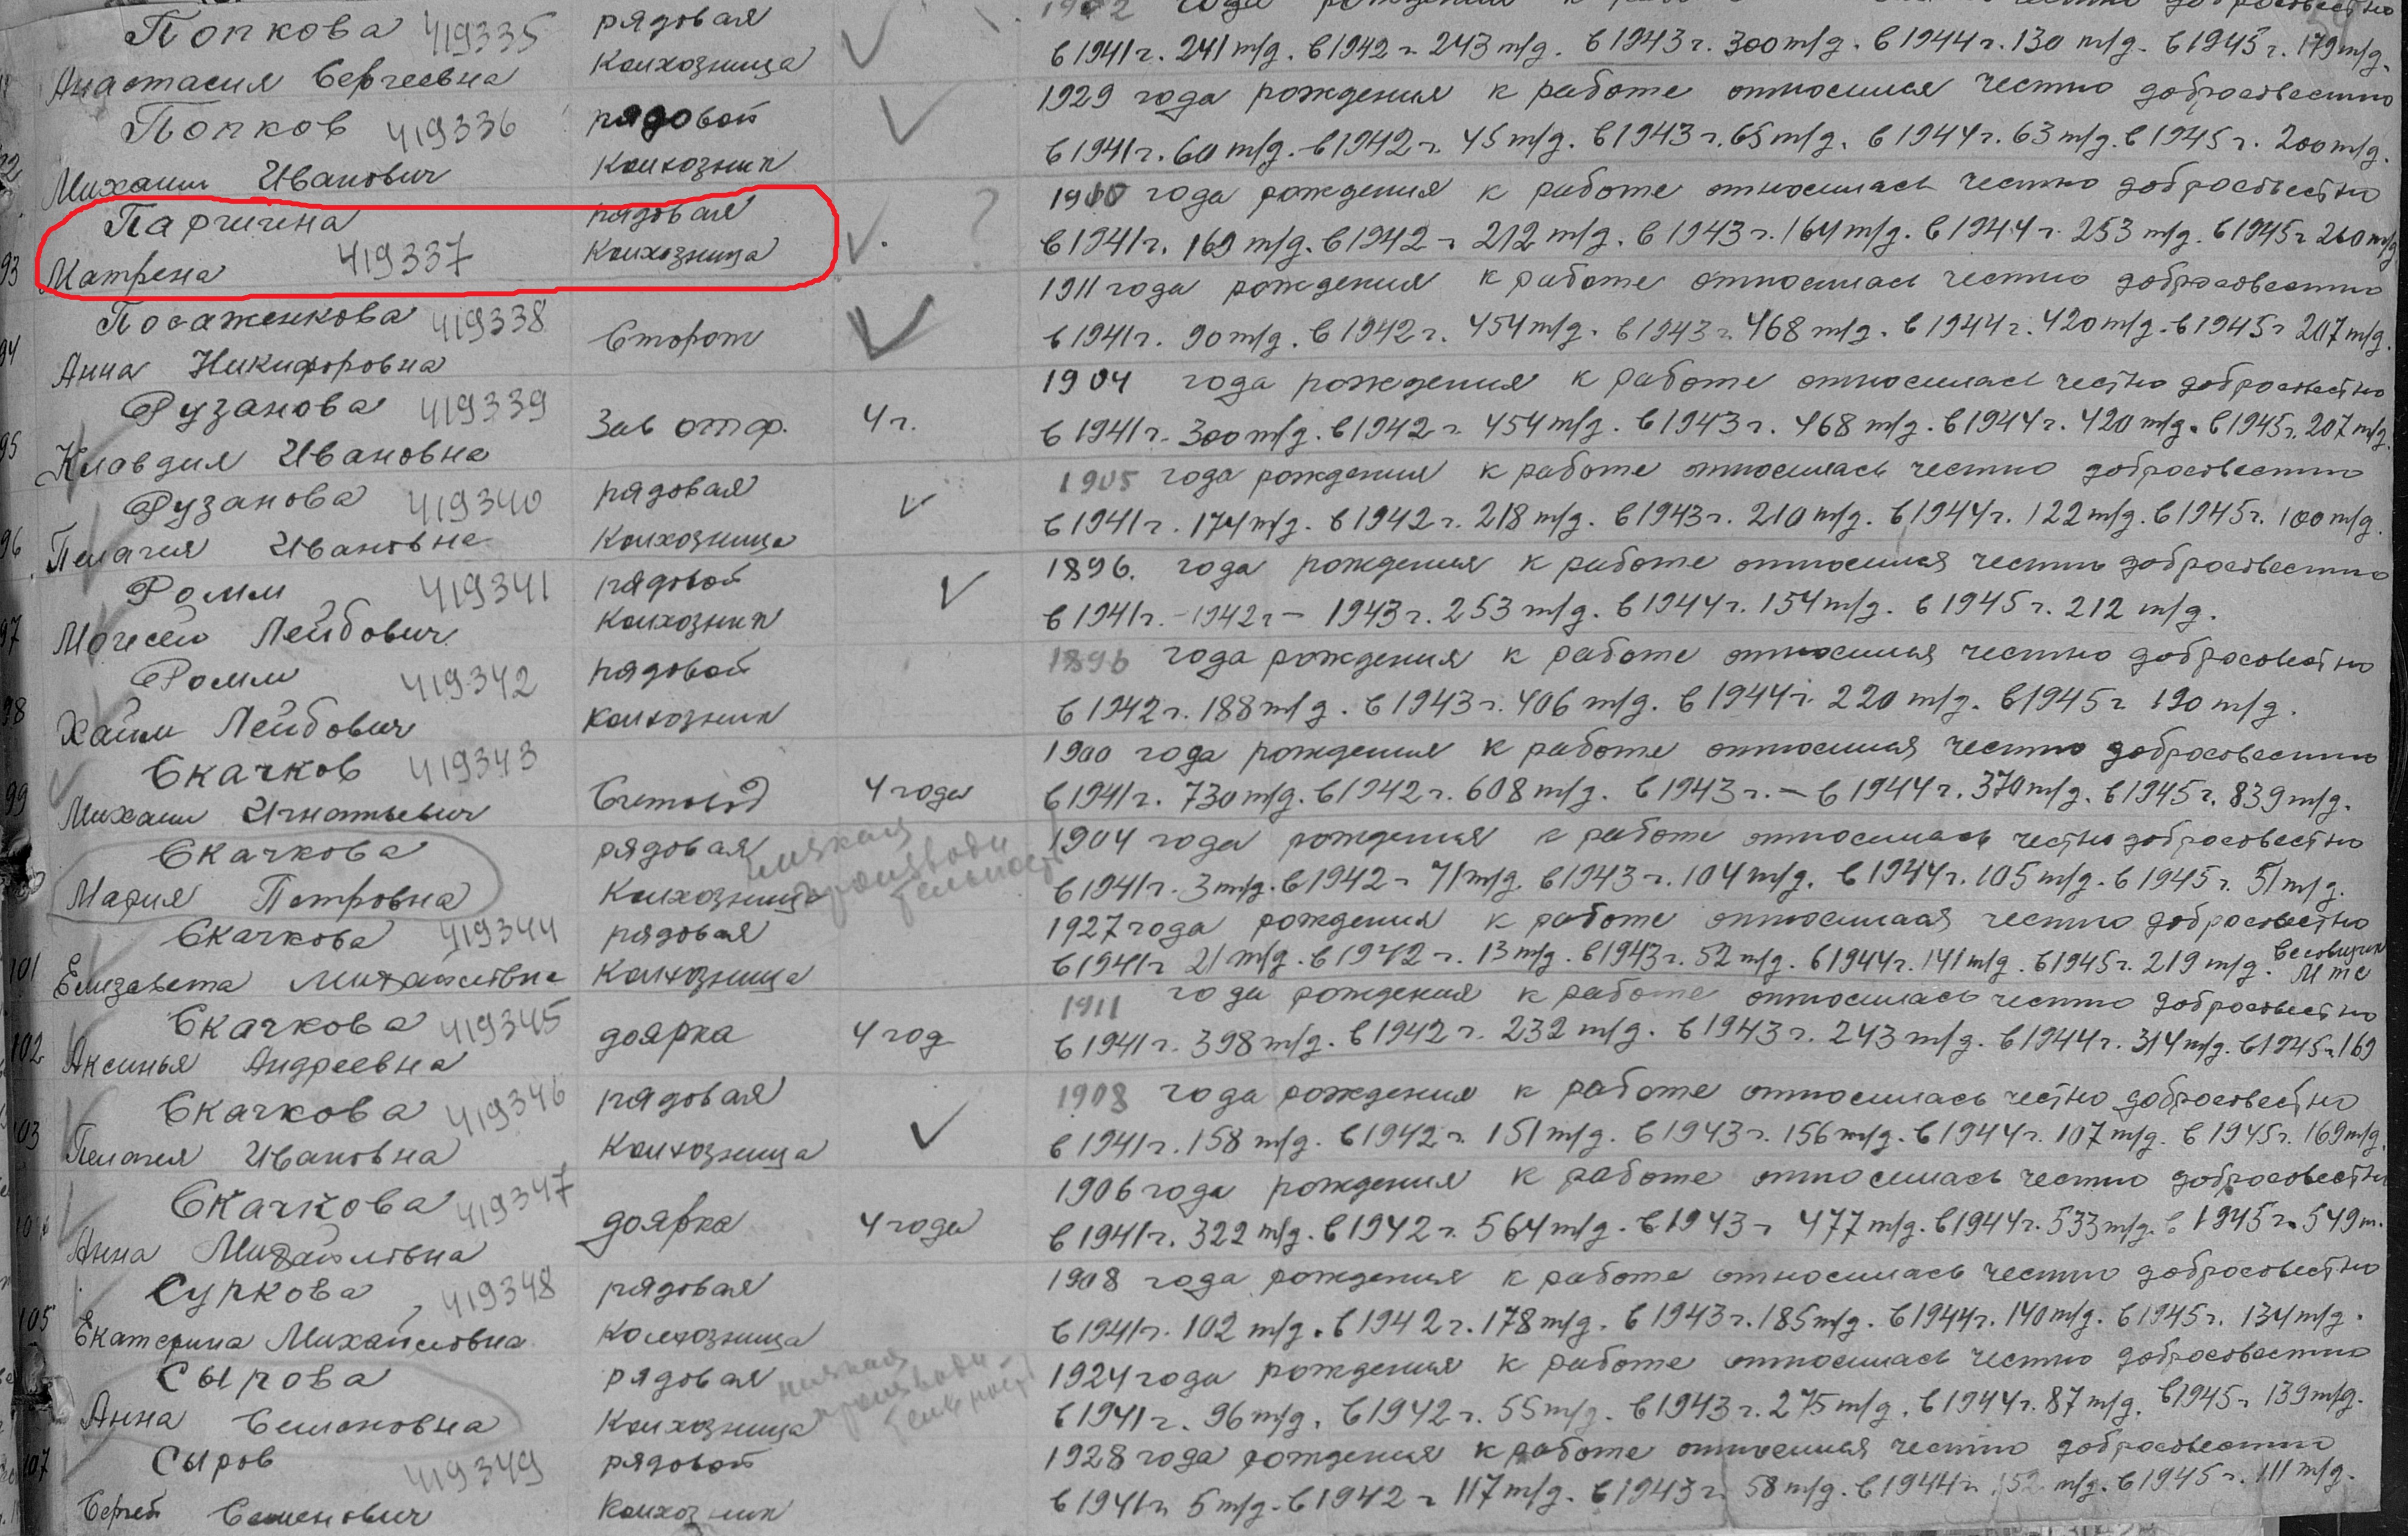 Попкова 419335 рядовая
Анастасия Сергеевна колхозница в 1941г. 241 т/д. в 1942 г. 243 т/д. в 1943 г. 300 т/д. в 1944 г. 130 т/д. в 1945 г. 179 т/д.
Попков 419336 рядовой 1929 года рождения к работе относился честно добросовестно
Михаил Иванович колхозник в 1941г. 60 т/д. в 1942 г. 45 т/д. в 1943 г. 65 т/д. в 1944 г. 63 т/д. в 1945 г. 200 т/д.
Паргигина рядовая ? 1900 года рождения к работе относилась честно добросовестно
93 Матрена 419337 колхозница в 1941г. 169 т/д. в 1942 г. 212 т/д. в 1943 г. 164 т/д. в 1944 г. 253 т/д. в 1945 г. 260 т/д
Посаженкова 419338 Сторож 1911 года рождения к работе относилась честно добросовестно
94 Анна Никифоровна в 1941г. 90 т/д. в 1942 г. 454 т/д. в 1943 г. 468 т/д. в 1944 г. 420 т/д. в 1945 г. 207 т/д.
Рузанова 419339 Зав отф. 4 г. 1904 года рождения к работе относилась честно добросовестно
95 Клавдия Ивановна в 1941г. 300 т/д. в 1942 г. 454 т/д. в 1943 г. 468 т/д. в 1944 г. 420 т/д. в 1945 г. 207 т/д.
Рузанова 419340 рядовая 1905 года рождения к работе относилась честно добросовестно
96 Пелагия Ивановна колхозница в 1941 г. 174 т/д. в 1942 г. 218 т/д. в 1943 г. 210 т/д. в 1944 г. 122 т/д. в 1945 г. 100 т/д.
Ромм 419341 рядовой 1896. года рождения к работе относился честно добросовестно
97 Могсей Лейбович колхозник в 1941 г. - 1942 г - 1943 г. 253 т/д. в 1944 г. 154 т/д. в 1945 г. 212 т/д.
Ромм 419342 рядовой 1896 года рождения к работе относился честно добросовестно
98 Хаим Лейбович колхозник в 1942 г. 188 т/д. в 1943 г. 406 т/д. в 1944 г. 220 т/д. в 1945 г 190 т/д.
Скачков 419343 1900 года рождения к работе относился честно добросовестно
99 Михаил Игнатьевич Счетовод 4 года в 1941 г. 730 т/д. в 1942 г. 608 т/д. в 1943 г. - в 1944 г. 370 т/д. в 1945 г. 839 т/д.
Скачкова рядовая низкая производительность 1904 года рождения к работе относилась честно добросовестно
Мария Петровна колхозница в 1941 г. 3 т/д. в 1942 г 71 т/д. в 1943 г. 104 т/д. в 1944 г. 105 т/д. в 1945 г. 51 т/д.
Скачкова 419344 рядовая 1927 года рождения к работе относилась честно добросовестно
101 Елизавета Михайловна колхозница в 1941 г 21 т/д. в 1942 г. 13 т/д. в 1943 г. 52 т/д. в 1944 г. 141 т/д. в 1945 г. 219 т/д. весовщик мтс
Скачкова 419345 доярка 4 год 1911 года рождения к работе относилась честно добросовестно
102 Аксинья Андреевна в 1941 г. 398 т/д. в 1942 г. 232 т/д. в 1943 г. 243 т/д. в 1944 г. 314 т/д. в 1945 г. 169
Скачкова 419346 рядовая 1908 года рождения к работе относилась честно добросовестно
103 Пелагея Ивановна колхозница в 1941 г. 158 т/д. в 1942 г. 151 т/д. в 1943 г. 156 т/д. в 1944 г. 107 т/д. в 1945 г. 169 т/д.
Скачкова 419347 доярка 4 года 1906 года рождения к работе относилась честно добросовестно
Анна Михайловна в 1941 г. 322 т/д. в 1942 г. 564 т/д. в 1943 г 477 т/д. в 1944 г. 533 т/д. в 1945 г. 549 т.
Суркова 419348 рядовая 1908 года рождения к работе относилась честно добросовестно
105 Екатерина Михайловна колхозница в 1941 г. 102 т/д. в 1942 г. 178 т/д. в 1943 г. 185 т/д. в 1944 г. 140 т/д. в 1945 г. 134 т/д.
Сырова рядовая низкая производительность 1924 года рождения к работе относилась честно добросовестно
Анна Семеновна колхозница в 1941 г. 96 т/д. в 1942 г. 55 т/д. в 1943 г. 275 т/д. в 1944 г. 87 т/д. в 1945 г. 139 т/д.
107 Сыров 419349 рядовой 1928 года рождения к работе относился честно добросовестно
Сергей Семенович колхозник в 1941 г. 5 т/д. в 1942 г 117 т/д. в 1943 г. 58 т/д. в 1944 г. 152 т/д. в 1945 г. 111 т/д.